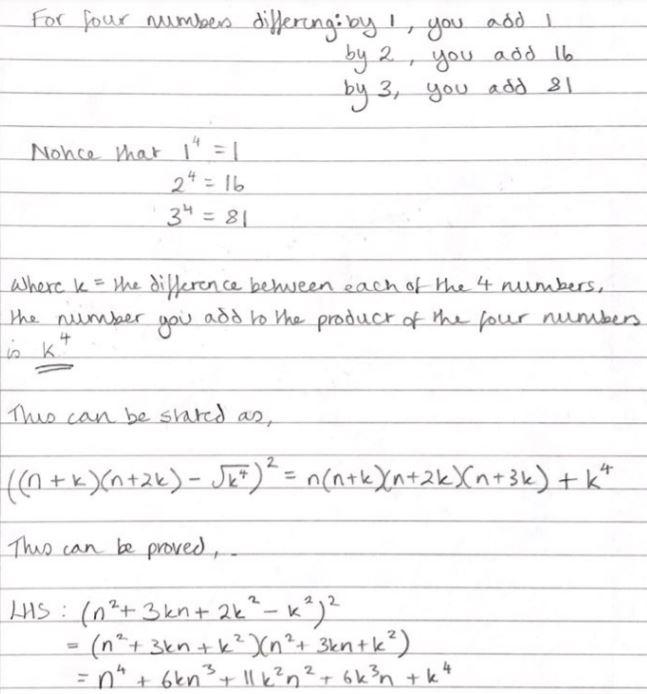 For four numbers differing: by 1, you add 1
by 2, you add 16
by 3, you add 81
Notice that 1⁴ = 1
2⁴ = 16
3⁴ = 81
Where k = the difference between each of the 4 numbers,
the number you add to the product of the four numbers
is k⁴
This can be stated as,
((n + k)(n + 2k) - √k⁴)² = n(n+k)(n+2k)(n+3k) + k⁴
This can be proved, ..
LHS : (n² + 3kn + 2k² - k²)²
= (n² + 3kn + k²)(n² + 3kn + k²)
= n⁴ + 6kn³ + 11k²n² + 6k³n + k⁴